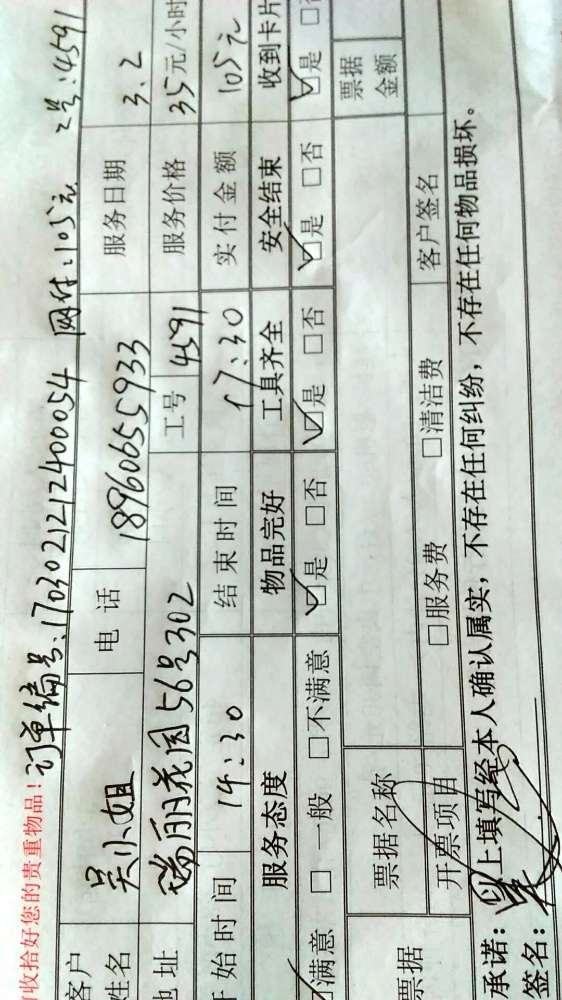 收拾好您的贵重物品！订单编号:1703021212400054 网付:105元 工号:4591
客户姓名 吴小姐 电话 18960655933 服务日期 3.2
地址 瑞丽花园56号302 工号 4591 服务价格 35元/小时
开始时间 14:30 结束时间 17:30 实付金额 105元
服务态度 物品完好 工具齐全 安全结束 收到卡片
满意 □一般 □不满意 ☑是 □否 ☑是 □否 ☑是 □否 ☑是 □否
票据 票据名称 票据金额
开票项目 □服务费 □清洁费 客户签名
承诺:以上填写经本人确认属实，不存在任何纠纷，不存在任何物品损坏。
签名: